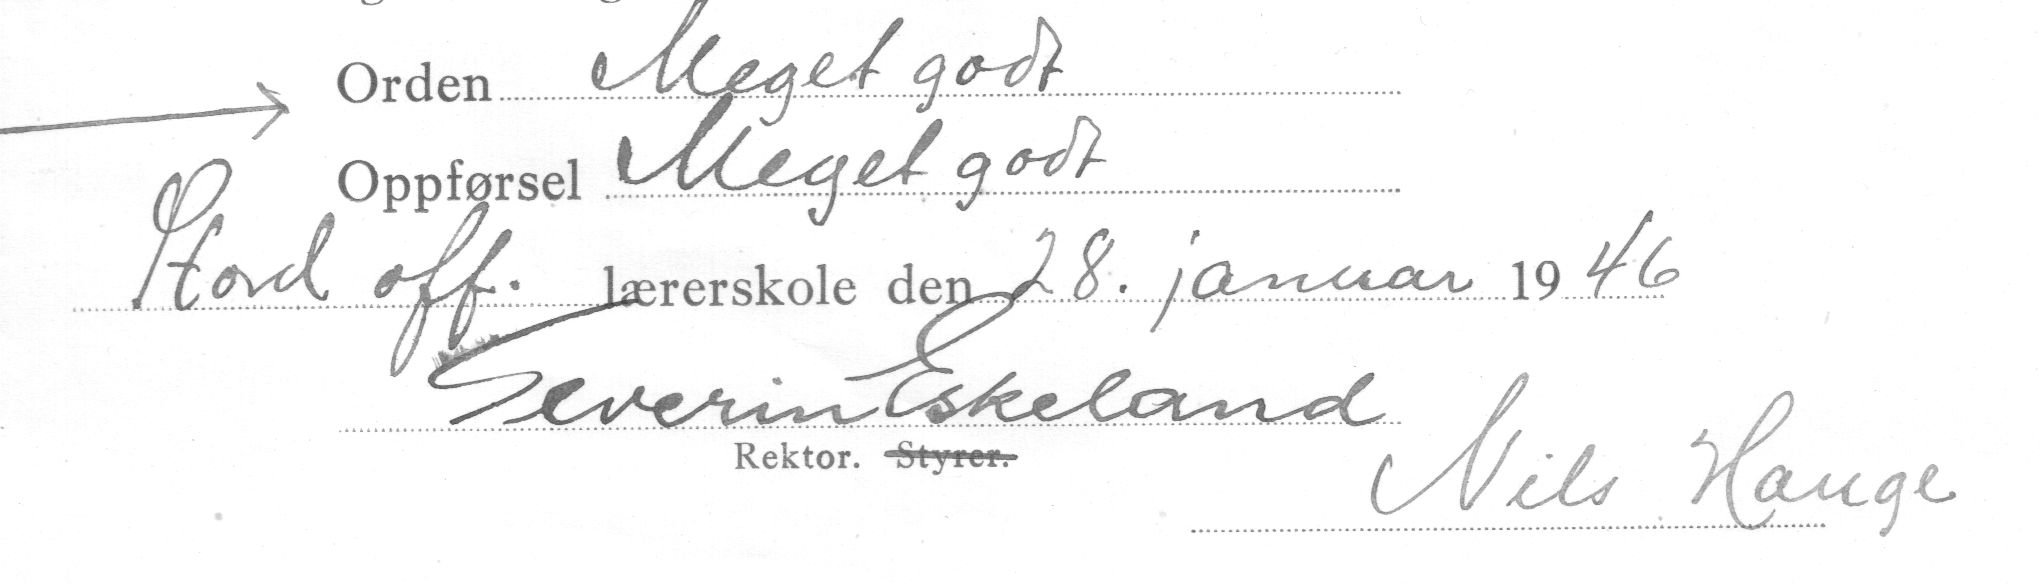 Orden Meget godt
Oppførsel Meget godt
Stord off. lærerskole den 28. januar 1946
Severin Eskeland
Rektor. Styrer.
Nils Hauge